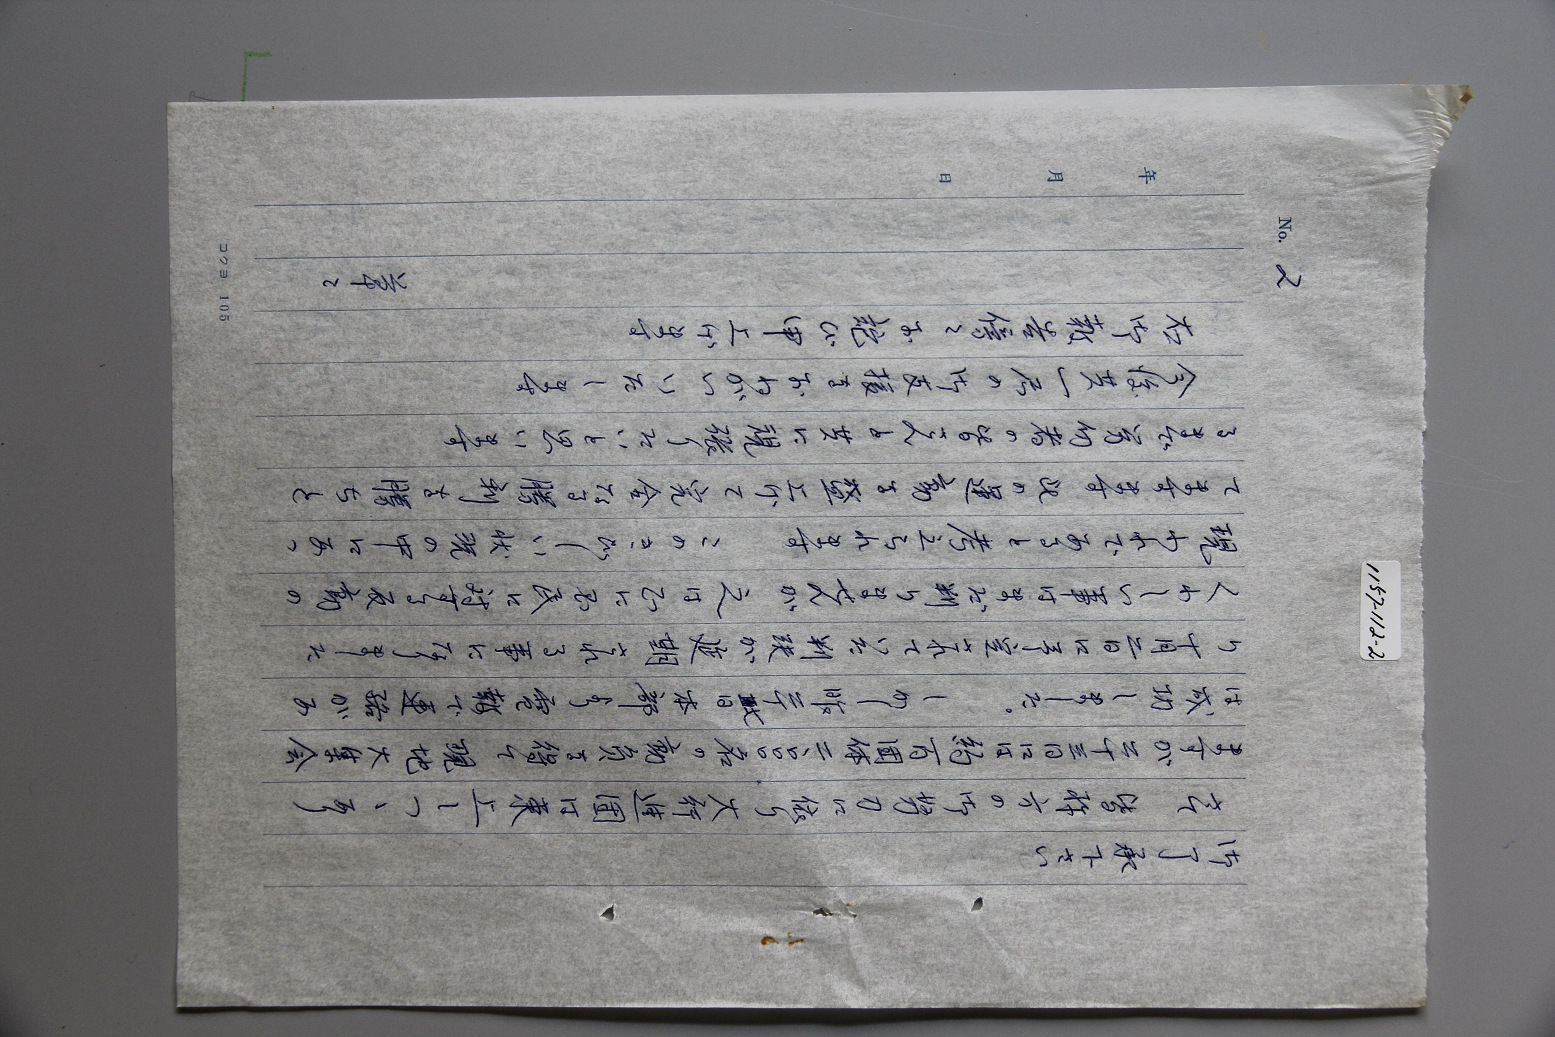 No. 2
御了承下さい
さて 皆様方の御努力に依り大行進団は東上しつゝあり
ますが二十三日には約百団体二、〇〇〇名の動員を得て現地大集会
は成功しました。しかし昨二 日本部より電報で連絡があ
り十月二日に予定されていた判決が延期される事になりました
くわしい事はまだ判りませんが 之は に対する反動の
現われであると考えられます この しい状況の中にあっ
てますます此の運動を盛上げて完全なる勝利を勝ちと
るまで労仂者の皆さんと共に頑張りたいと思います
今後共一層の御支援をおねがいいたします
右御報告傍々お詫び申上げます
草々
年 月 日
コクヨ 105
1157-112-2